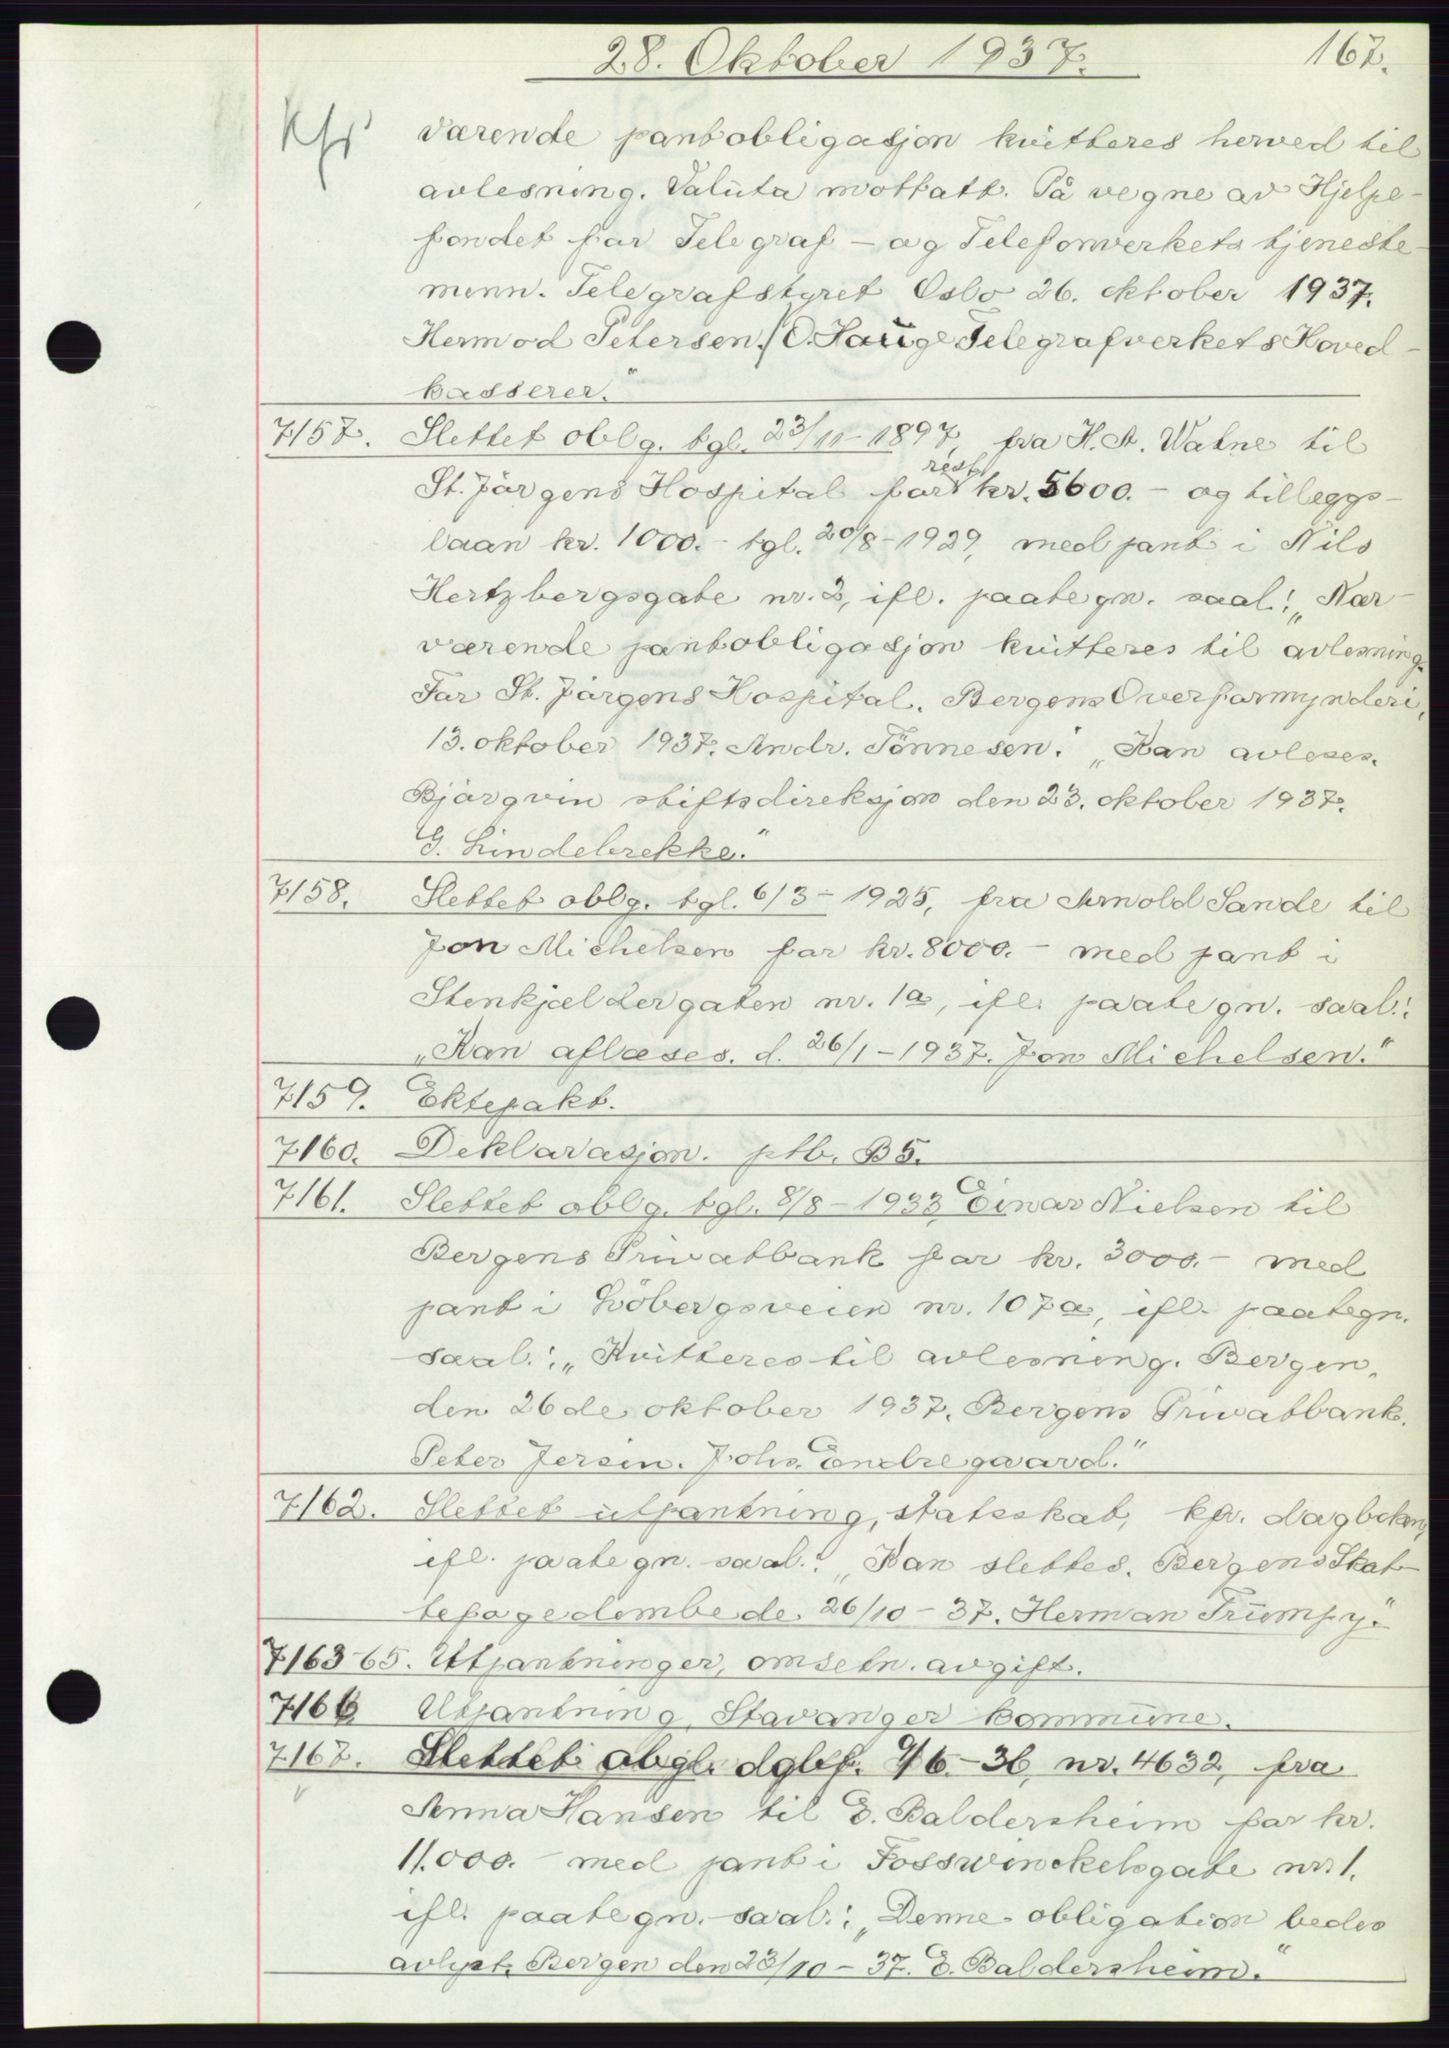 28. Oktober 1937. 167.
Kfr værende pantobligasjon kvitteres herved til
avlesning. Valuta mottatt. På vegne av Hjelpe-
fondet for Telegraf - og Telefonverkets tjeneste-
menn. Telegrafstyret Oslo 26. oktober 1937.
Hermod Petersen./O. Hauge Telegrafverkets Hoved-
kasserer."
7157. Slettet oblg. tgl. 23/11-1897, fra H. A. Watne til
rest
St. Jørgens Hospital for kr. 5600.- og tilleggs-
laan kr. 1000.- tgl. 20/8-1929, med pant i Nils
Hertzbergsgate nr. 2, ifl. paategn. saal.: „Nær-
værende pantobligasjon kvitteres til avlesning.
For St. Jørgens Hospital. Bergens Overformynderi,
13. oktober 1937. Andr. Tönnesen." „Kan avleses.
Bjørgvin stiftsdireksjon den 23. oktober 1937.
G. Lindebrekke."
7158. Slettet oblg. tgl. 6/3-1925, fra Arnold Sande til
Jon Michelsen for kr. 8000.- med pant i
Stenkjeldergaten nr. 1a, ifl. paategn. saal.:
„Kan aflæses. d. 26/1-1937. Jon Michelsen."
7159. Ektepakt.
7160. Deklarasjon. ptb. B5.
7161. Slettet oblg. tgl. 8/8-1933, Einar Nielsen til
Bergens Privatbank for kr. 3000.- med
pant i Löbergsveien nr. 107a, ifl. paategn.
saal.: „Kvitteres til avlesning. Bergen,
den 26de oktober 1937. Bergens Privatbank.
Peter Jersin. Johs. Endregaard."
7162. Slettet utpantning, statsskat, kfr. dagboken,
ifl. paategn. saal.: „Kan slettes. Bergens Skat-
tefogedembede. 26/10-37. Herman Trümpy."
7163-65. Utpantninger, omsetn. avgift.
7166 Utpantning, Stavanger kommune.
7167. Slettet obgl. dgbf. 9/6-36, nr. 4632, fra
Anna Hansen til E. Baldersheim for kr.
11.000.- med pant i Fosswinckelsgate nr. 1.
ifl. paategn. saal.: „Denne obligation bedes
avlyst. Bergen den 23/10-37. E. Baldersheim."